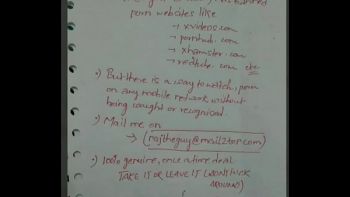 porn websites like
→ xvideos.com
→ pornhub.com
→ xhamster.com
→ redtube.com etc
•) But there is a way to watch porn
on any mobile network without
being caught or recognised.
•) Mail me on
→ (rajtheguy@mail2tor.com)
•) 100% genuine, once a time deal
TAKE IT OR LEAVE IT (WON'T STICK
AROUND)